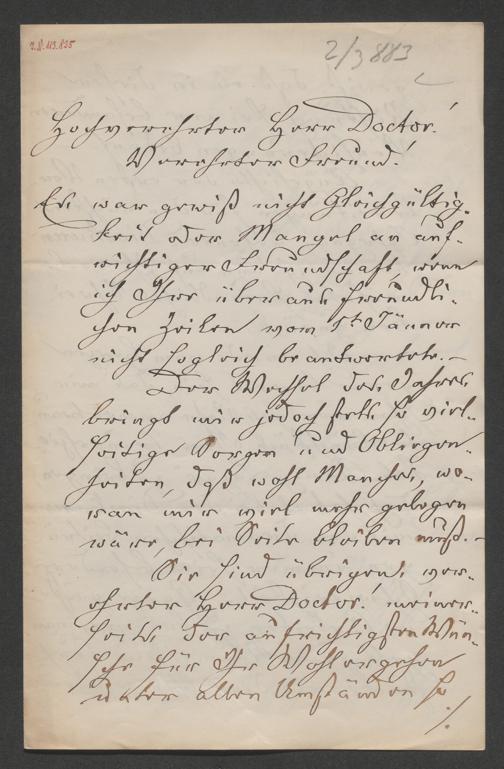 I.N. 113.835
2/3 883
Hochverehrter Herr Doctor!
Verehrter Freund!
Es war gewiß nicht Gleichgültig-
keit oder Mangel an auf-
richtiger Freundschaft, wenn
ich Ihre überaus freundli-
chen Zeilen vom 1t Jänner
nicht sogleich beantwortete. –
Der Wechsel des Jahres
bringt mir jedoch stets so viel-
seitige Sorgen und Obliegen-
heiten, daß wohl Manches, wo-
ran mir viel mehr gelegen
wäre, bei Seite bleiben muß. –
Sie sind übrigens ver-
ehrter Herr Doctor! meiner-
seits der aufrichtigsten Wün-
sche für Ihr Wohlergehen
unter allen Umständen so
./.